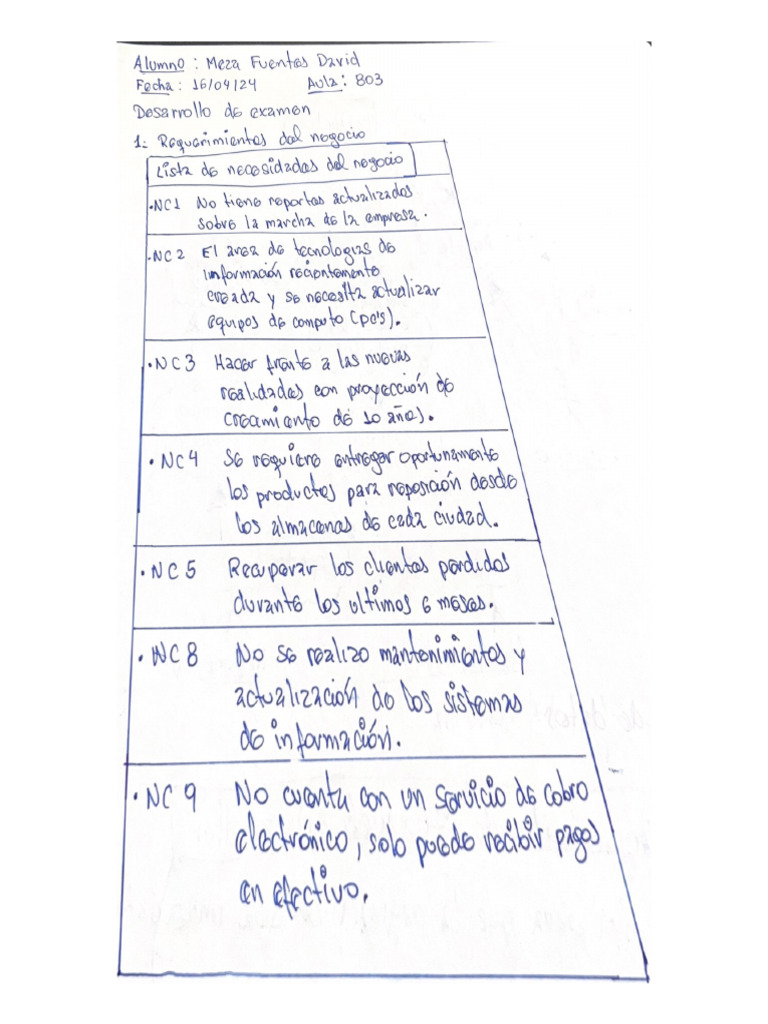 Alumno : Meza Fuentes David
Fecha : 16/04/24 Aula : 803
Desarrollo de examen
1. Requerimientos del negocio
Lista de necesidades del negocio
• NC1 No tiene reportes actualizados
sobre la marcha de la empresa.
• NC2 El area de tecnologias de
información recientemente
creada y se necesita actualizar
equipos de computo (pc's).
• NC3 Hacer frente a las nuevas
realidades con proyección de
crecimiento de 10 años.
• NC4 Se requiere entregar oportunamente
los productos para reposición desde
los almacenes de cada ciudad.
• NC5 Recuperar los clientes perdidos
durante los ultimos 6 meses.
• NC8 No se realizo mantenimientos y
actualización de los sistemas
de información.
• NC9 No cuenta con un servicio de cobro
electrónico, solo puede recibir pagos
en efectivo.